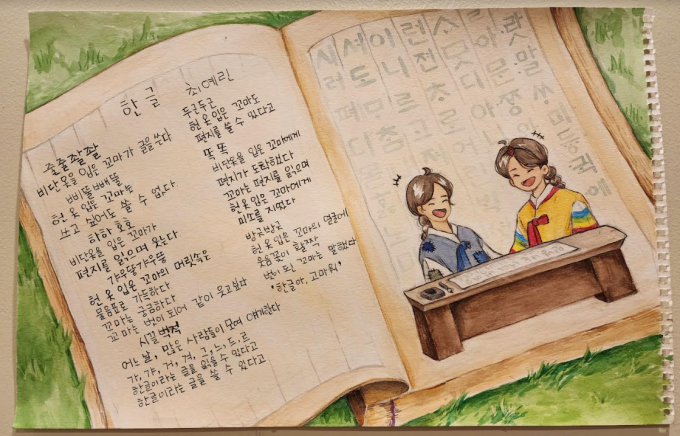 한글 최예린
줄줄 좔좔
비단옷을 입은 꼬마가 글을 쓴다
삐뚤빼뚤
헌 옷 입은 꼬마는
쓰고 싶어도 쓸 수 없다
하하 호호
비단옷을 입은 꼬마가
편지를 읽으며 웃는다
갸우뚱갸우뚱
헌 옷 입은 꼬마의 머릿속은
물음표로 가득하다
꼬마는 궁금하다
꼬마는 벗이 되어 같이 웃고싶다
시끌 벅적
어느 날, 많은 사람들이 모여 얘기한다
가, 갸, 거, 겨, 그, 느, 드, 르
한글이라는 글을 읽을 수 있다고
한글이라는 글을 쓸 수 있다고
두근두근
헌 옷 입은 꼬마도
편지를 쓸 수 있다고
똑 똑
비단옷을 입은 꼬마에게
편지가 도착했다
꼬마는 편지를 읽으며
헌 옷 입은 꼬마에게
미소를 지었다
방긋방긋
헌 옷 입은 꼬마의 얼굴에
웃음꽃이 활짝
벗이 된 꼬마는 말했다
"한글아, 고마워"
랏말
런젼
이니르
셔도
시러펴